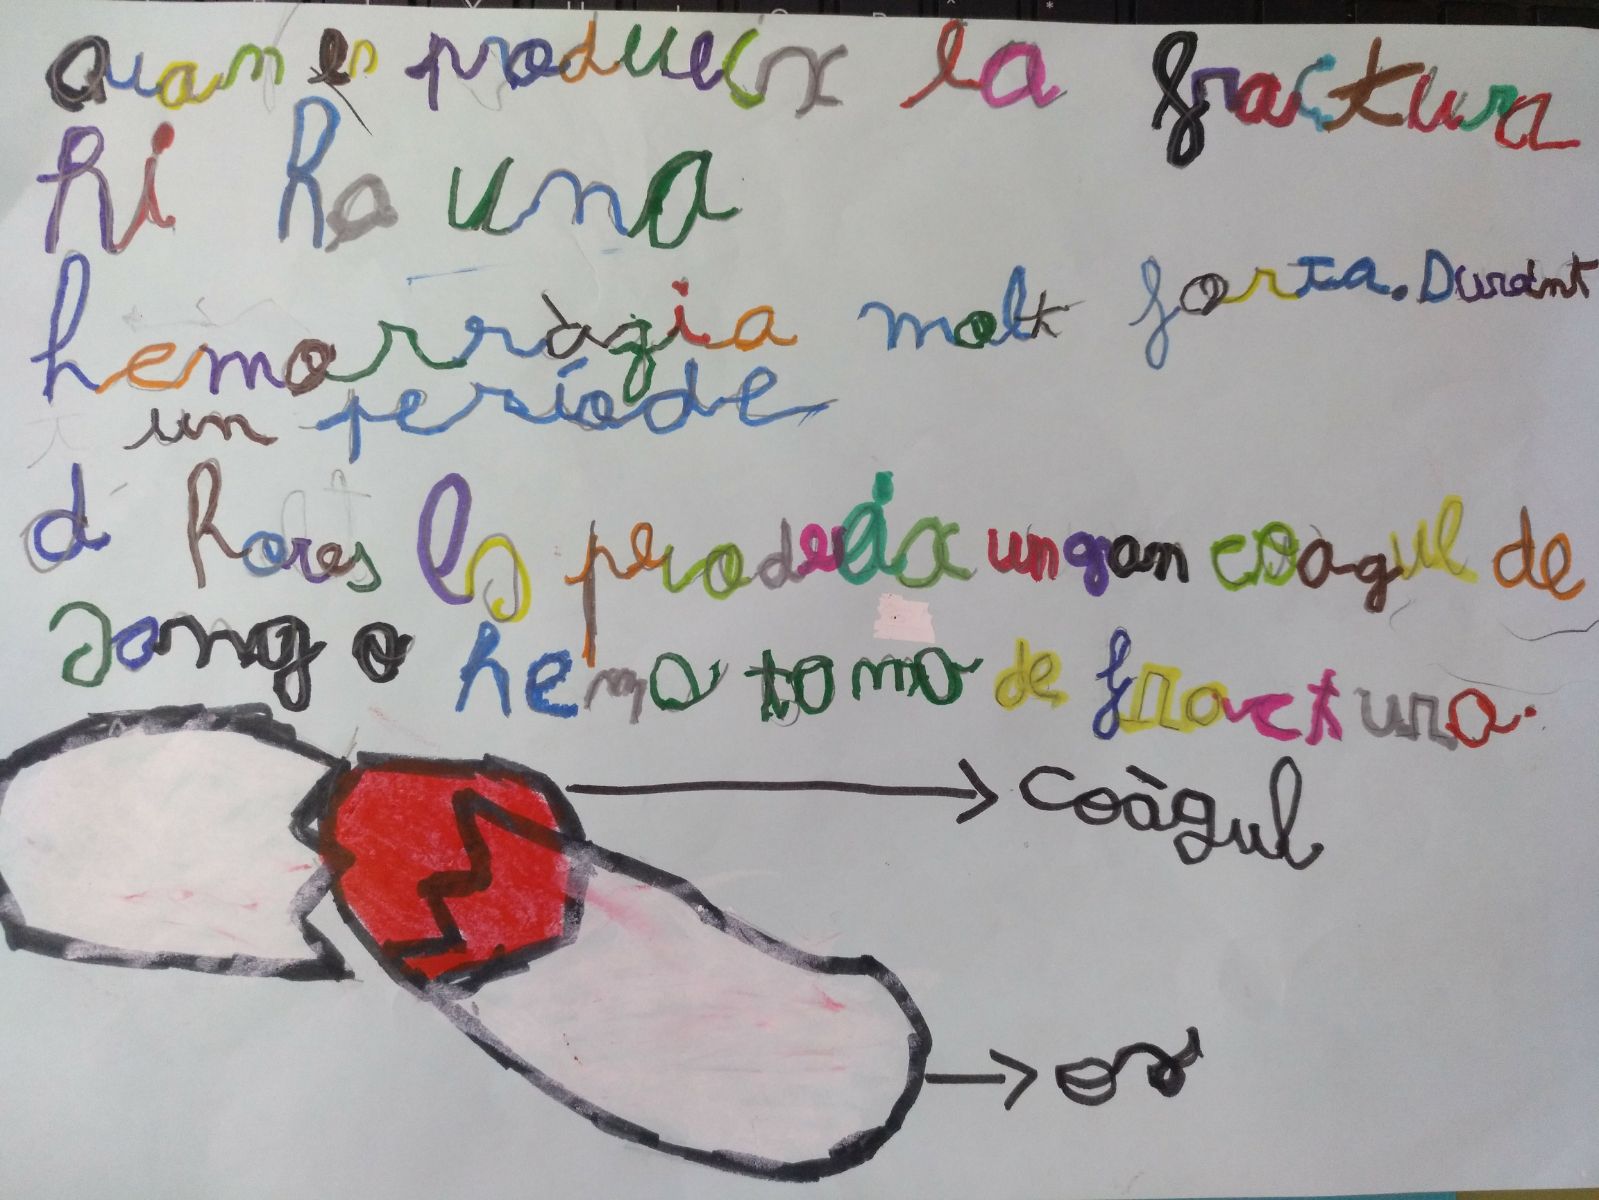 Quan es produeix la fractura
hi ha una
hemorràgia molt forta. Durant
un període
d hores es produeix un gran coàgul de
sang o hematoma de fractura.
coàgul
os